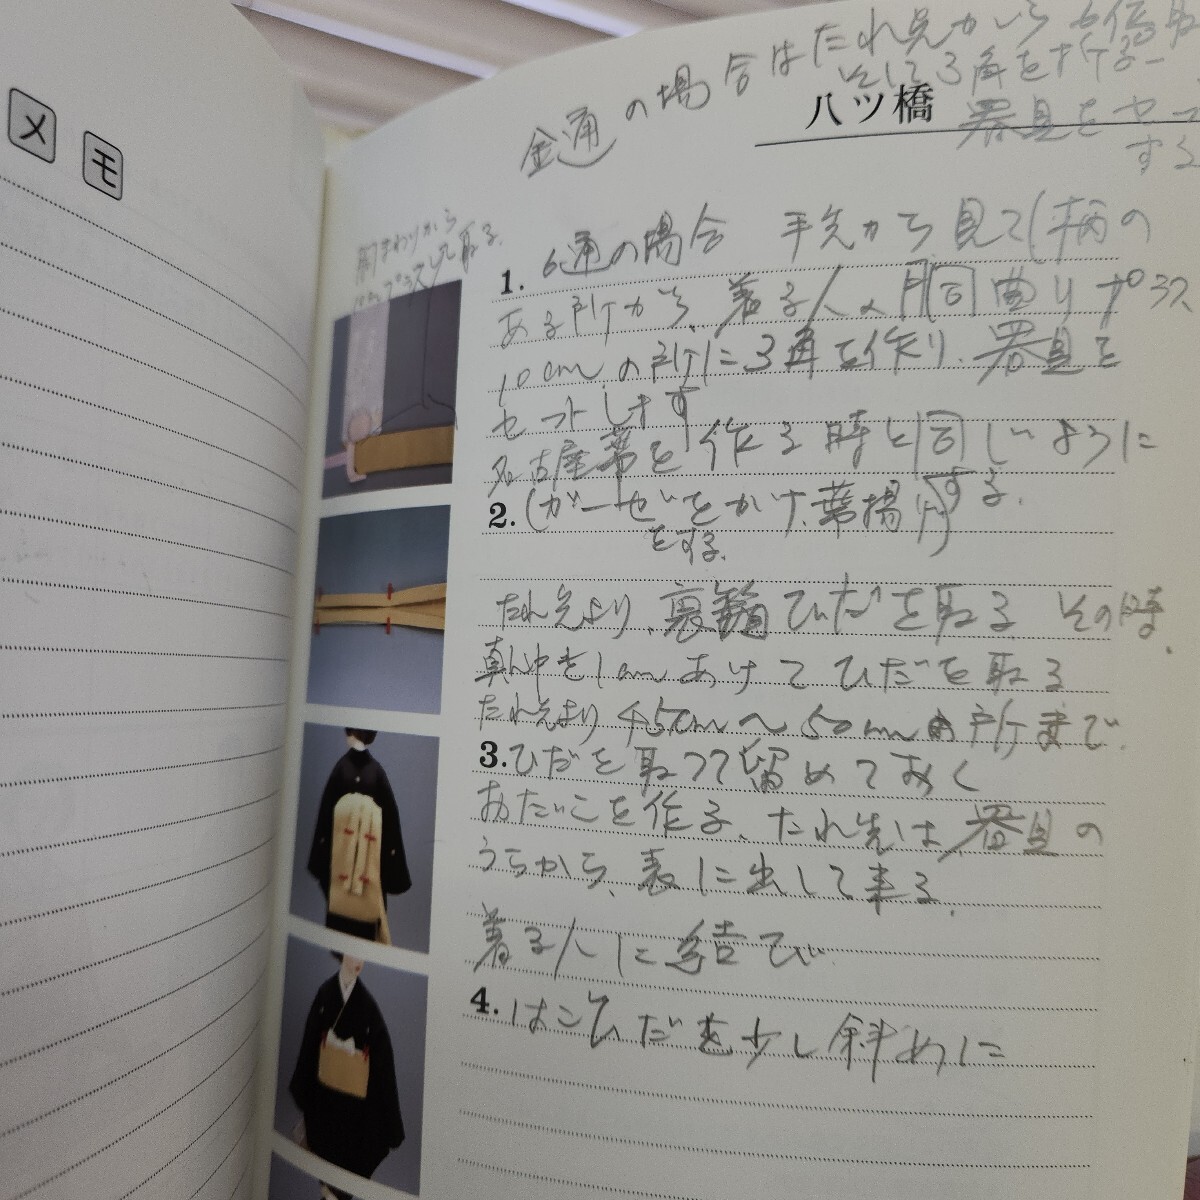 メモ
金通の場合はたれ先から6倍取
そして3角を折る
八ツ橋
器具をセット
する
胴まわりから
10cmプラスして取る.
1. 6通の場合 手先から見て(柄の
ある所から、着る人の胴曲りプラス
10cmの所に3角を作り.器具を
セットします
名古屋帯を作る時と同じように
2. (ガーゼをかけ、帯揚げ)する.
をする.
たれ先より、裏箱ひだを取る その時.
真ん中を1cmあけてひだを取る
たれ先より45cm〜50cmの所まで.
3. ひだを取って留めておく
おたいこを作る、たれ先は器具の
うらから、表に出して来る.
着る人に結び
4. はこひだを少し斜めに